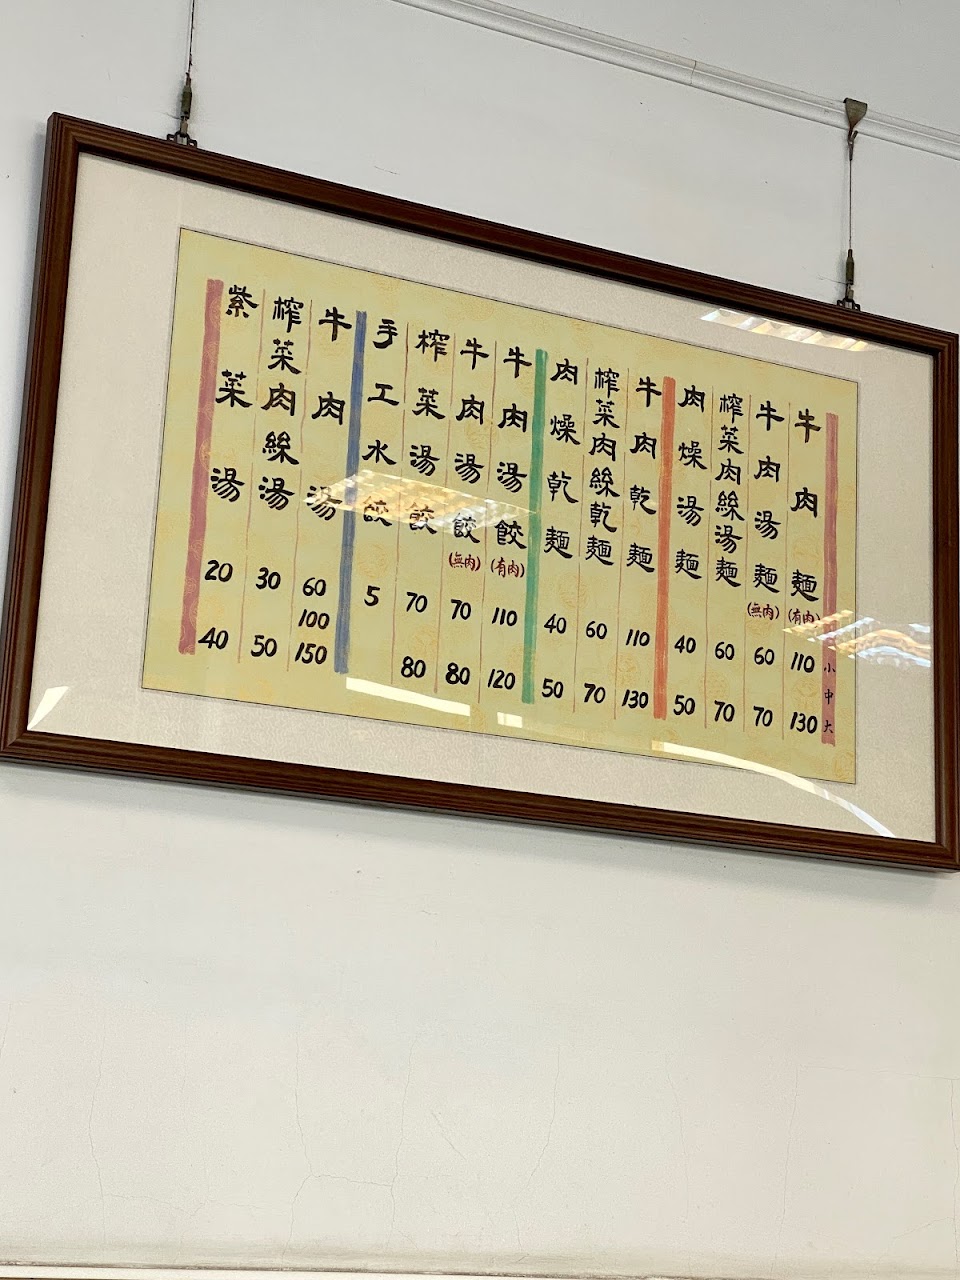 小 中 大
牛肉麵 (有肉) 110 130
牛肉湯麵 (無肉) 60 70
榨菜肉絲湯麵 60 70
肉燥湯麵 40 50
牛肉乾麵 110 130
榨菜肉絲乾麵 60 70
肉燥乾麵 40 50
牛肉湯餃 (有肉) 110 120
牛肉湯餃 (無肉) 70 80
榨菜湯餃 70 80
手工水餃 5
牛肉湯 60 100 150
榨菜肉絲湯 30 50
紫菜湯 20 40